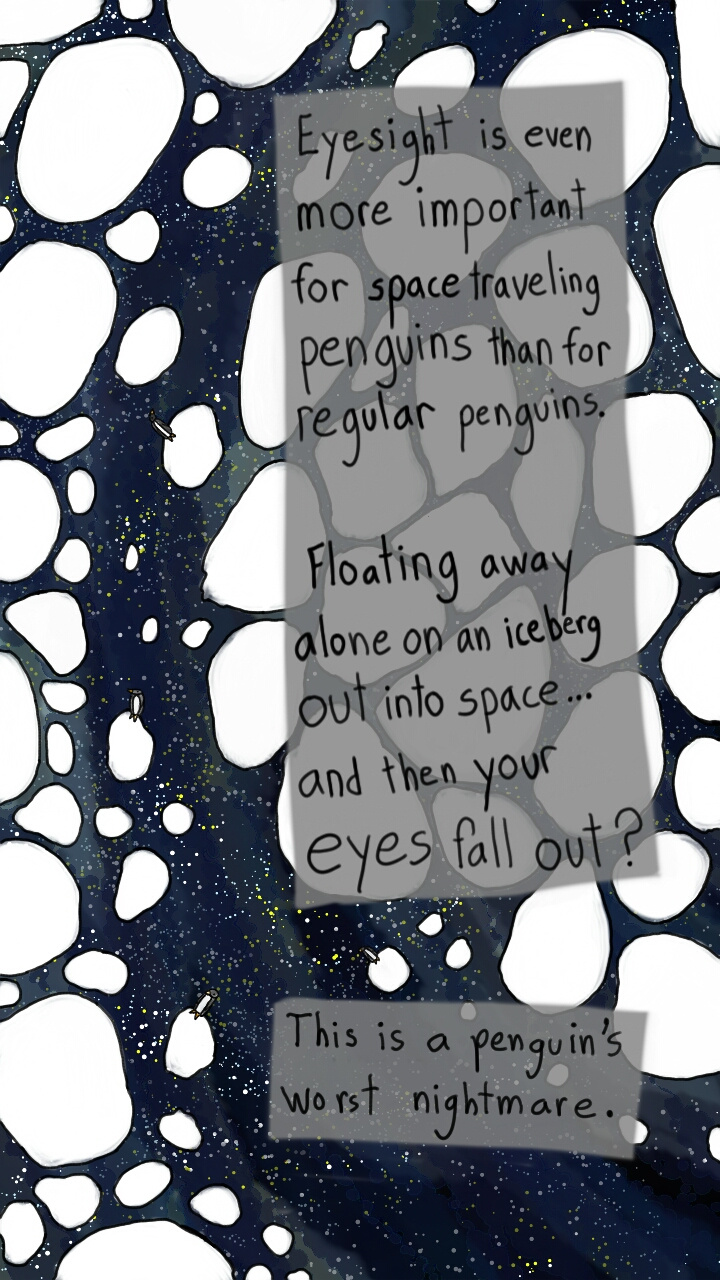 Eyesight is even
more important
for space traveling
penguins than for
regular penguins.
Floating away
alone on an iceberg
out into space...
and then your
eyes fall out?
This is a penguin's
worst nightmare.